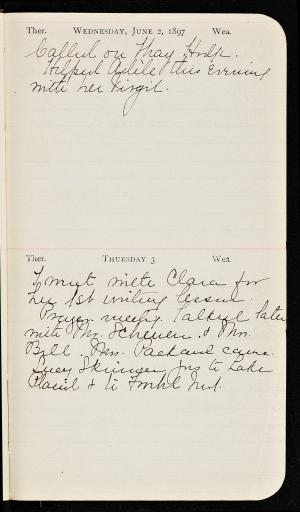 Ther. WEDNESDAY, JUNE 2, 1897 Wea.
Called on Thay
Helped Adile this evening
with her Virgil.
Ther. THURSDAY 3 Wea.
I went with Clara for
her 1st writing lesson.
Prayer meeting. Talked later
with Mrs. & Mrs.
Bell. Mrs. Packard came.
Lucy Skinner to Lake
Placid & to